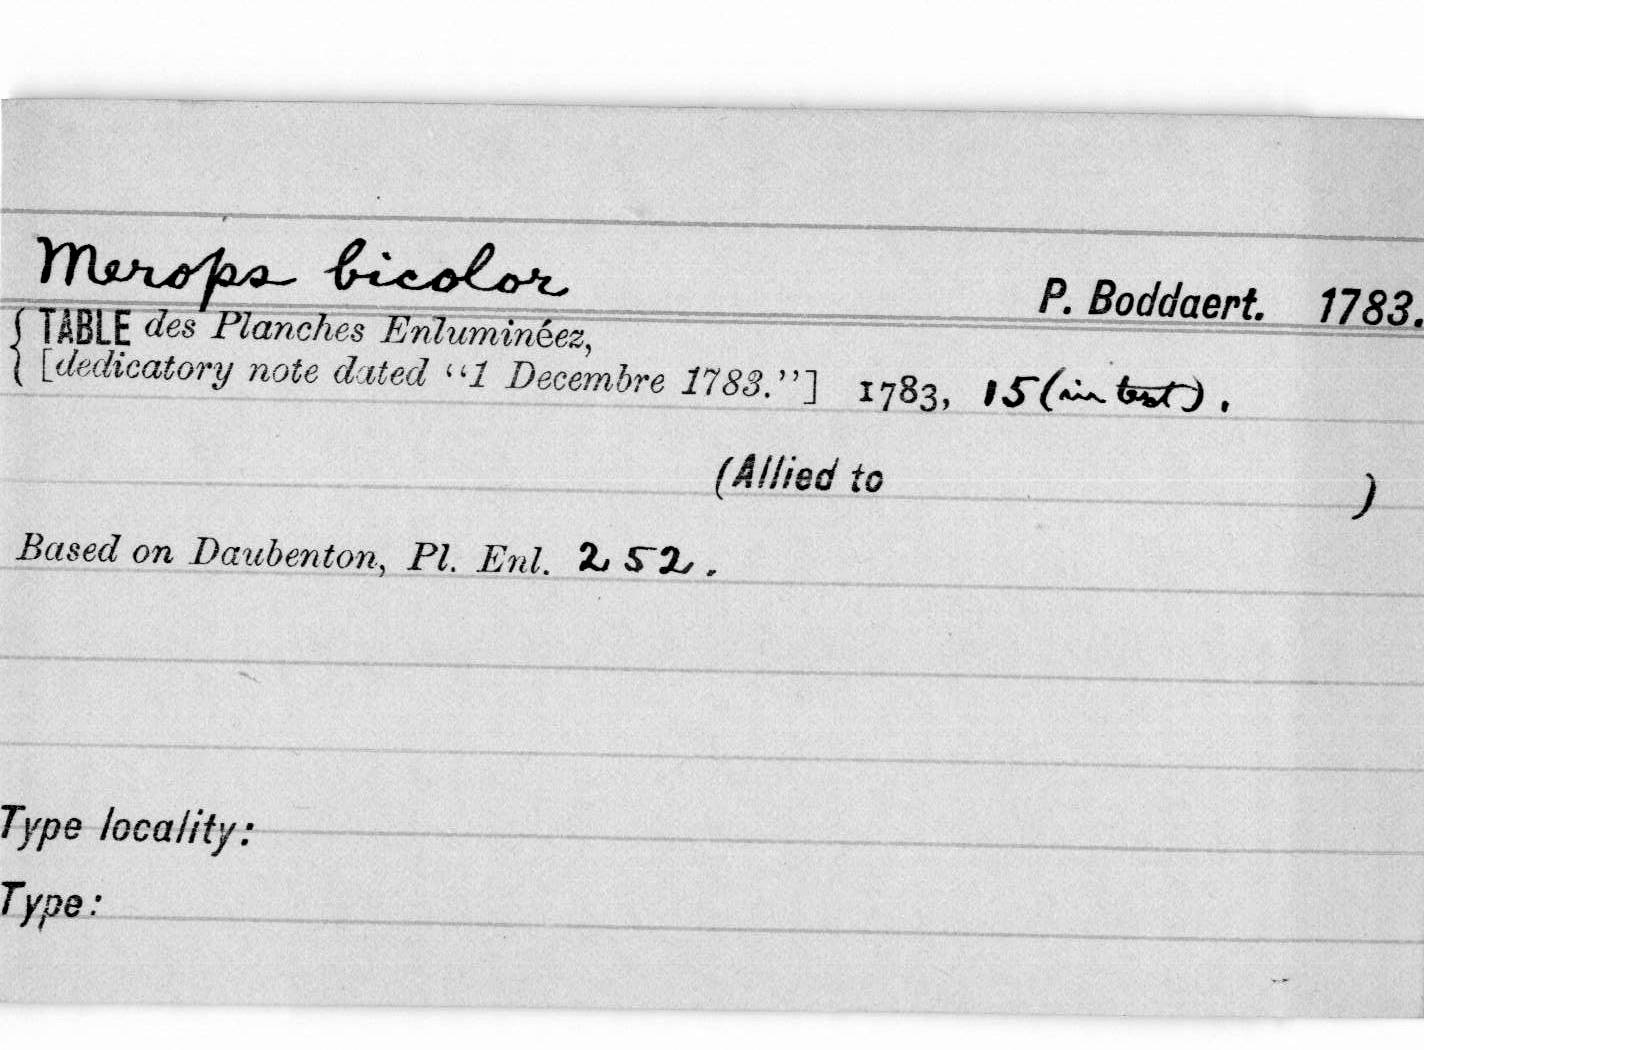 Merops bicolor P. Boddaert. 1783.
{ TABLE des Planches Enluminéez,
[dedicatory note dated “1 Decembre 1783.”] 1783, 15 (in text).
(Allied to )
Based on Daubenton, Pl. Enl. 252.
Type locality:
Type: